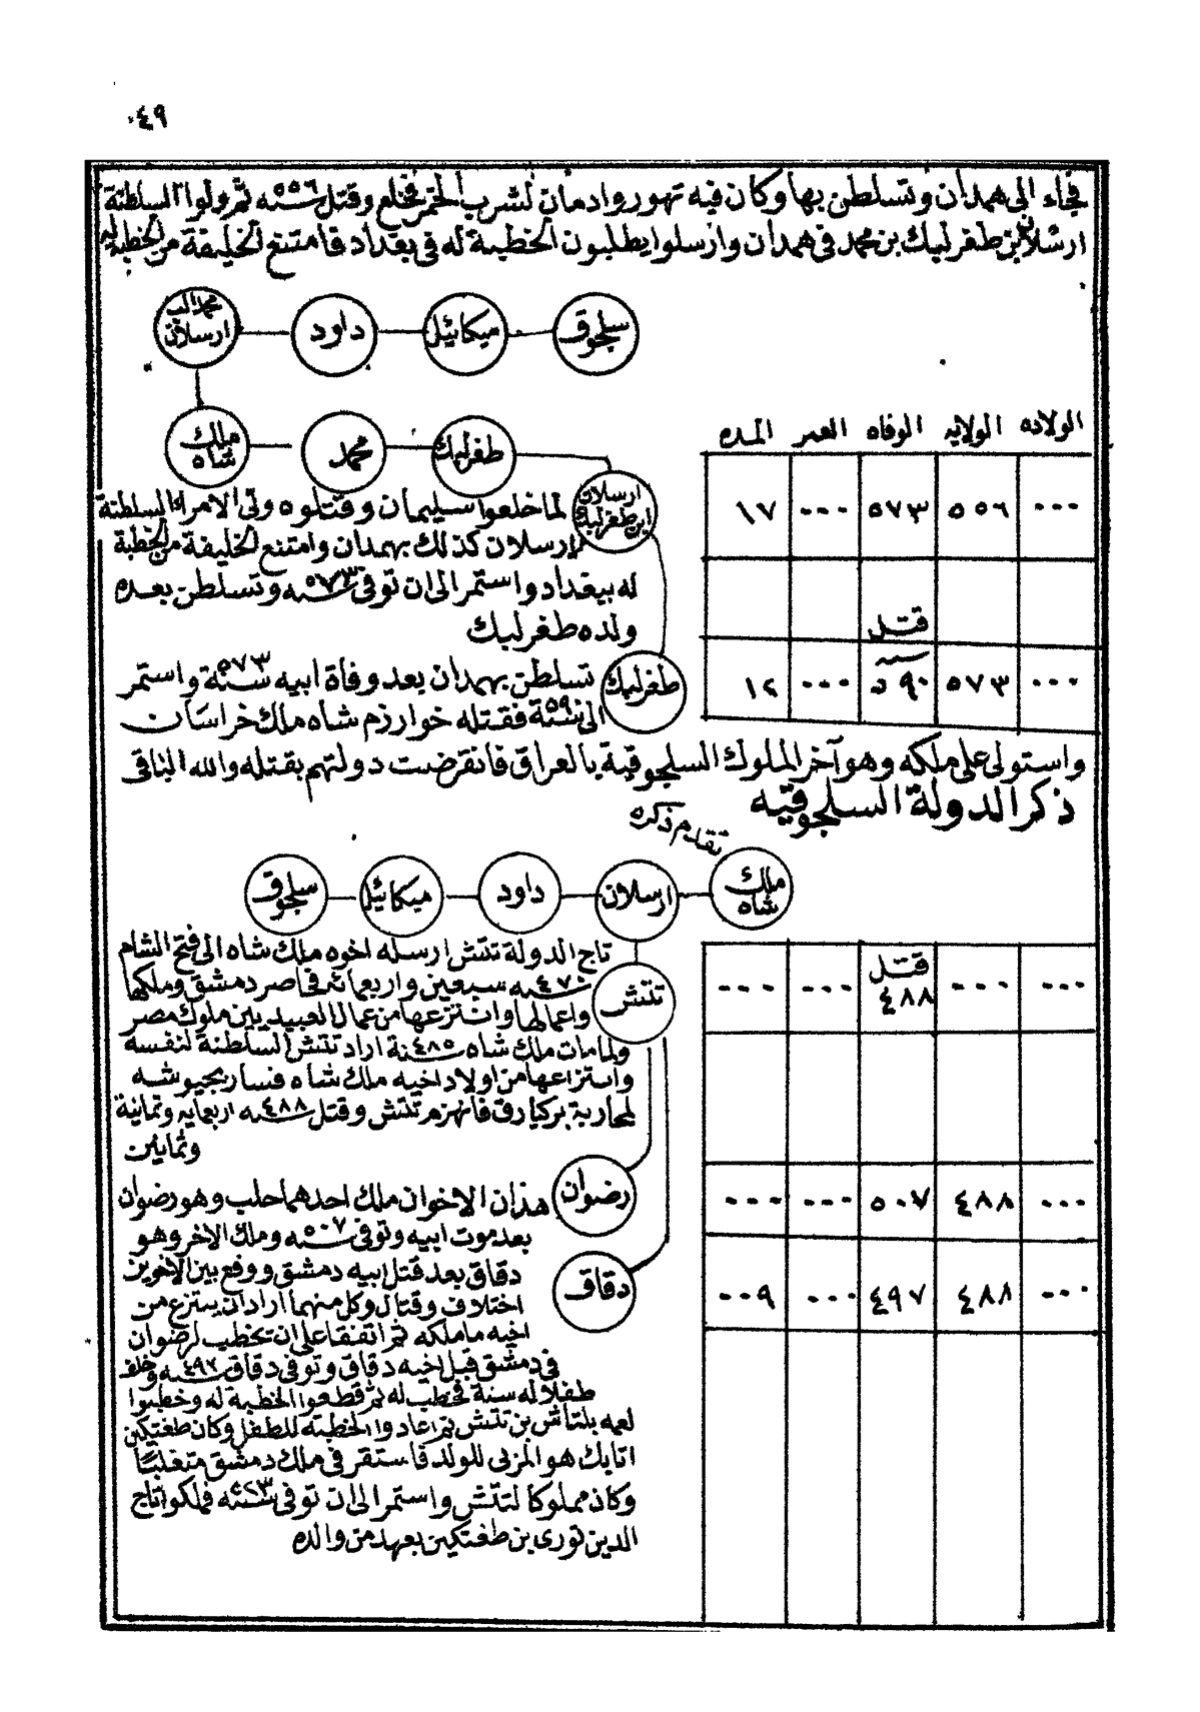 ٠٤٩
فجاء الى همدان وتسلطن بها وكان فيه تهور وادمان لشرب الخمر فخلع وقتل سنة ٥٥٦ ثم ولوا السلطنة
ارسلان بن طغرلبك بن محمد في همدان وارسلوا يطلبون الخطبة له في بغداد فامتنع الخليفة من الخطبة له
سلجوق
ميكائيل
داود
محمد الب ارسلان
ملك شاه
محمد
طغرلبك
الولاده الولايه الوفاه العمر المده
٠٠٠ ٥٥٦ ٥٧٣ ٠٠٠ ١٧
ارسلان ابن طغرلبك
لما خلعوا سليمان وقتلوه ولى الامراء السلطنة
ارسلان كذلك بهمدان وامتنع الخليفة من الخطبة
له ببغداد واستمر الى ان توفى سنة ٥٧٣ وتسلطن بعده
ولده طغرلبك
قتل
٠٠٠ ٥٧٣ سنة ٥٩٠ ٠٠٠ ١٢
طغرلبك
تسلطن بهمدان بعد وفاة ابيه سنة ٥٧٣ واستمر
الى سنة ٥٩٠ فقتله خوارزم شاه ملك خراسان
واستولى على ملكه وهو آخر الملوك السلجوقية بالعراق فانقرضت دولتهم بقتله والله الباقى
ذكر الدولة السلجوقيه
تقدم ذكره
ملك شاه
ارسلان
داود
ميكائيل
سلجوق
٠٠٠ ٠٠٠ قتل ٤٨٨ ٠٠٠ ٠٠٠
تتش
تاج الدولة تتش ارسله اخوه ملك شاه الى فتح الشام
سنة ٤٧٠ سبعين واربعمائة فحاصر دمشق وملكها
واعمالها وانتزعها من عمال العبيديين ملوك مصر
ولما مات ملك شاه سنة ٤٨٥ اراد تتش السلطنة لنفسه
وانتزاعها من اولاد اخيه ملك شاه فسار بجيوشه
لمحاربة بركيارق فانهزم تتش وقتل سنة ٤٨٨ اربعمايه وثمانية
وثمانين
٠٠٠ ٤٨٨ ٥٠٧ ٠٠٠ ٠٠٠
رضوان
هذان الاخوان ملك احدهما حلب وهو رضوان
بعد موت ابيه وتوفى سنة ٥٠٧ وملك الاخر وهو
٠٠٠ ٤٨٨ ٤٩٧ ٠٠٠ ٠٠٩
دقاق
دقاق بعد قتل ابيه دمشق ووقع بين الاخوين
اختلاف وقتال وكل منهما اراد ان ينتزع من
اخيه ما ملكه ثم اتفقا على ان يخطب لرضوان
في دمشق قبل اخيه دقاق وتوفى دقاق سنة ٤٩٧ وخلف
طفلا له سنة فخطب له ثم قطعوا الخطبة له وخطبوا
لعمه بلتاش بن تتش ثم اعادوا الخطبة للطفل وكان طغتكين
اتابك هو المربى للولد فاستقر في ملك دمشق متغلبا
وكان مملوكا لتتش واستمر الى ان توفى سنة فملكوا تاج
الدين تورى بن طغتكين بعهد من والده